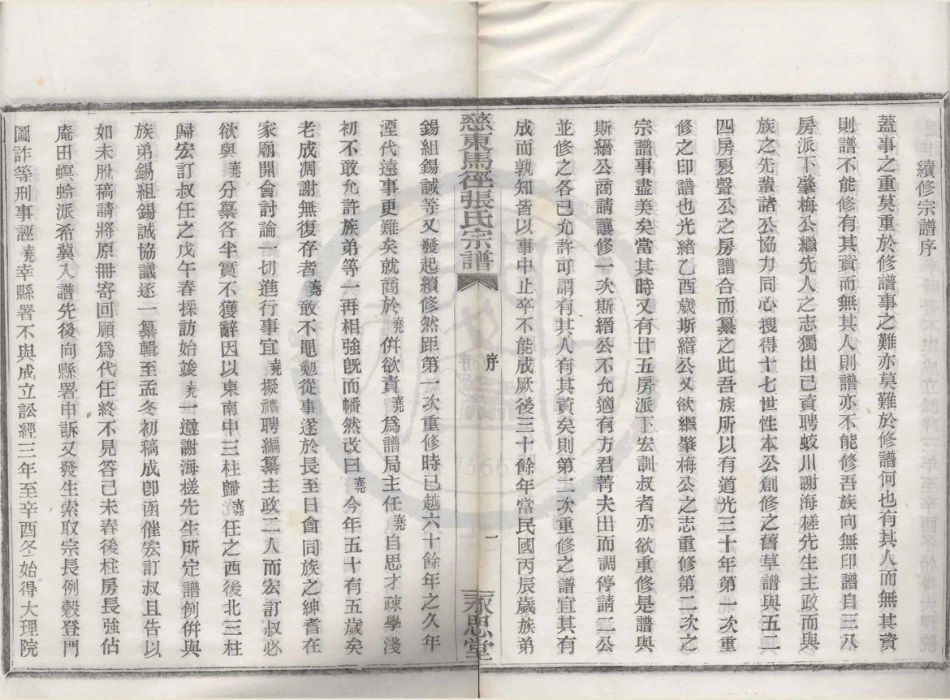 續修宗譜序
蓋事之重莫重於修譜事之難亦莫難於修譜何也有其人而無其資
則譜不能修有其資而無其人則譜亦不能修吾族向無印譜自三八
房派下肇梅公繼先人之志獨出己資聘蛟川謝海槎先生主政而與
族之先蜚諸公協力同心搜得十七世性本公創修之舊草譜與五二
四房夏聲公之房譜合而纂之此吾族所以有道光三十年第一次重
修之印譜也光緒乙酉歲斯縉公又欲繼肇梅公之志重修第二次之
宗譜事盡美矣當其時又有廿五房派下宏訓叔者亦欲重修是譜與
斯縉公商請讓修一次斯縉公不允適有方君菁夫出而調停請二公
並修之各已允許可謂有其人有其資矣則第二次重修之譜宜其有
成而孰知皆以事中止卒不能成厥後三十餘年當民國丙辰歲族弟
慈東馬徑張氏宗譜
序
一
永思堂
錫組錫誠等又發起續修然距第一次重修時已越六十餘年之久年
湮代遠事更難矣就商於堯併欲責堯爲譜局主任堯自思才疎學淺
初不敢允許族弟等一再相強旣而幡然改曰堯今年五十有五歲矣
老成凋謝無復存者堯敢不黽勉從事遂於長至日會同族之紳耆在
家廟開會討論一切進行事宜堯擬禮聘編纂主政二人而宏訂叔必
欲與堯分纂各半實不獲辭因以東南中三柱歸堯任之西後北三柱
歸宏訂叔任之戊午春採訪始竣堯一遵謝海槎先生所定譜例併與
族弟錫組錫誠協議逐一纂輯至孟冬初稿成卽函催宏訂叔且告以
如未脫稿請將原冊寄回願爲代任終不見答己未春後柱房長強佔
庵田螟蛉派希冀入譜先後向縣署申訴又發生索取宗長例穀登門
圖詐等刑事誣堯幸縣署不與成立訟經三年至辛酉冬始得大理院